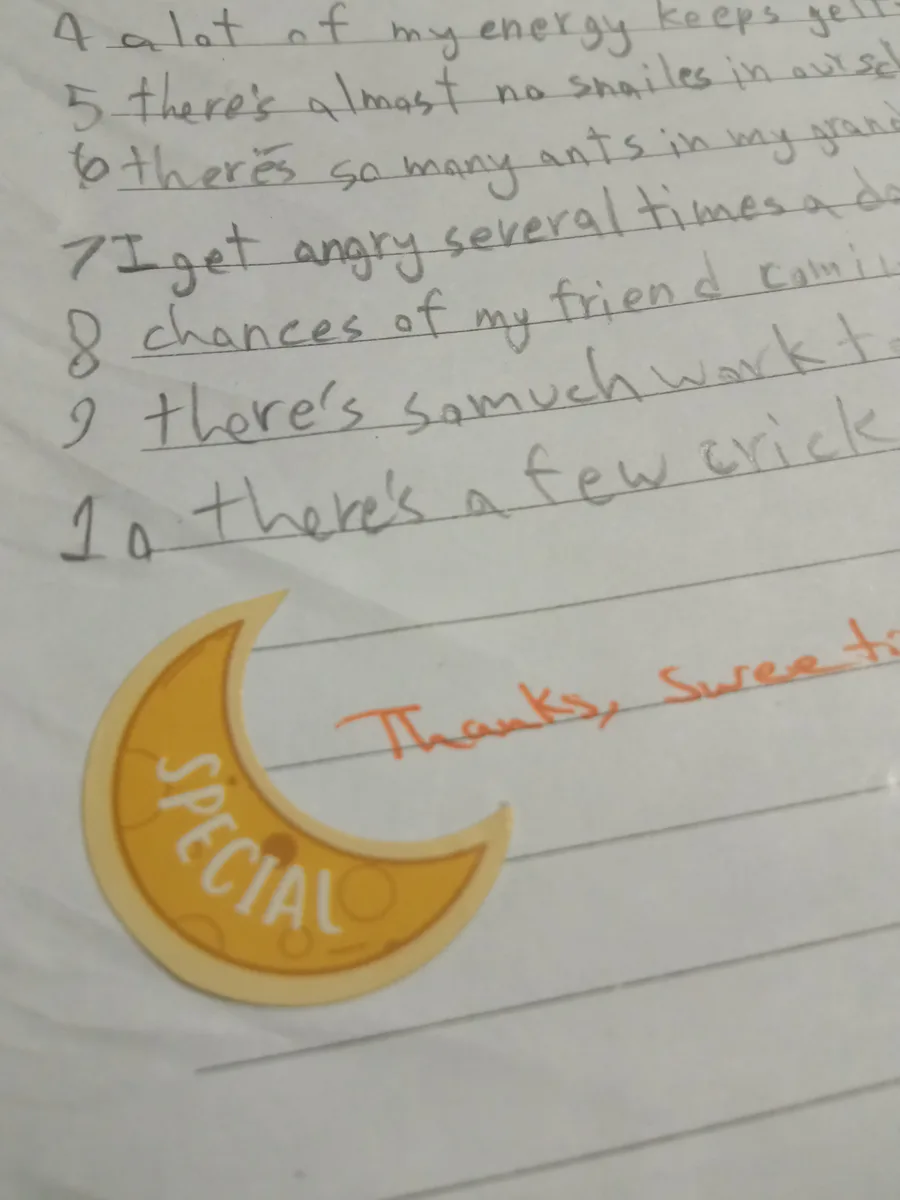 4 a lot of my energy keeps gett
5 there's almost no snailes in our scl
6 there's so many ants in my grand
7 I get angry several times a da
8 chances of my friend comi
9 there's so much work t
10 there's a few crick
Thanks, Sweeti
SPECIAL